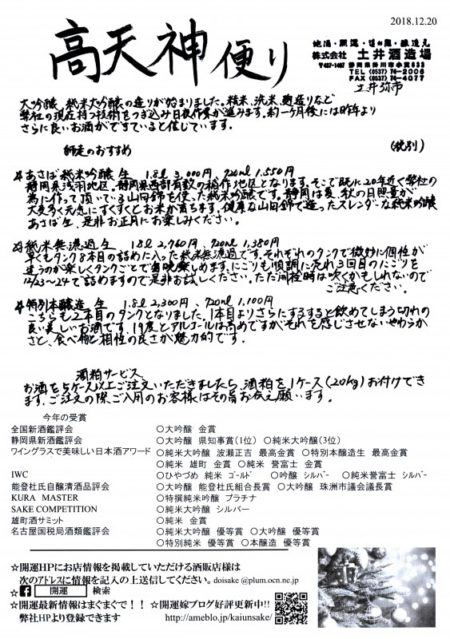 2018.12.20
高天神便り
地酒・開運・
株式会社 土井酒造場
静岡県掛川市小貫633
TEL (0537) 74-2006
FAX (0537) 74-4077
土井弥市
大吟醸、純米大吟醸の造りが始まりました。精米、洗米、麹造りなど
弊社の現在持つ技術をつぎ込み日夜作業が進みます。約一ヶ月後には昨年より
さらに良いお酒ができていると信じています。
師走のおすすめ
(税別)
あさば純米吟醸 生 1.8l 3,000円 720ml 1,550円
静岡県浅羽地区。静岡県西部有数の稲作地区となります。そこで既に20年近く弊社の
為に作って頂いている山田錦を使った純米吟醸です。静岡は夏、秋の日照量が
大変多く元気にすくすくとお米が育ちます。健康な山田錦で造ったスレンダーな純米吟醸
あさば生、是非お正月にお楽しみください。
純米無濾過 生 1.8l 2,760円 720ml 1,380円
早くもタンク8本目の詰めに入った純米無濾過です。それぞれのタンクで微妙に個性が
違うのが楽しくタンクごとで当晩楽しめます。にごりも順調に売れ3回目のにごりを
12/23～24で詰めますので是非お試しください。ただ開栓時は吹くかもしれないので
ご注意ください。
特別本醸造 生 1.8l 2,300円 720ml 1,100円
こちらも2本目のタンクとなりました。1本目よりさらにするすると飲めてしまう切れの
良い美しいお酒です。19度とアルコールは高めですが、それを感じさせないやわらか
さと、食べ物と相性の良さが魅力的です。
酒粕サービス
お酒を5ケース以上ご注文いただきましたら、酒粕を1ケース(20kg)お付けでき
ます。ご注文の際、ご入用のお客様はその旨お伝え願います。
今年の受賞
全国新酒鑑評会 ○大吟醸 金賞
静岡県新酒鑑評会 ○大吟醸 県知事賞(1位) ○純米大吟醸(3位)
ワイングラスで美味しい日本酒アワード ○純米大吟醸 波瀬正吉 最高金賞 ○特別本醸造生 最高金賞
○純米 雄町 金賞 ○純米 誉富士 金賞
IWC ○ひやづめ 純米 ゴールド ○吟醸 シルバー ○純米誉富士 シルバー
能登杜氏自醸清酒品評会 ○大吟醸 能登杜氏組合長賞 ○大吟醸 珠洲市議会議長賞
KURA MASTER ○特撰純米吟醸 プラチナ
SAKE COMPETITION ○純米大吟醸 シルバー
雄町酒サミット ○純米 金賞
名古屋国税局酒類鑑評会 ○純米大吟醸 優等賞 ○大吟醸 優等賞
○特別純米 優等賞 ○本醸造 優等賞
☆開運HPにお店情報を掲載していただける酒販店様は
次のアドレスに情報を記入の上送信してください。doisake@plum.ocn.ne.jp
☆ 開運 検索
☆開運最新情報はまぐまぐで!! ☆開運嫁ブログ好評更新中!!
弊社HPより登録できます http://ameblo.jp/kaiunsake/